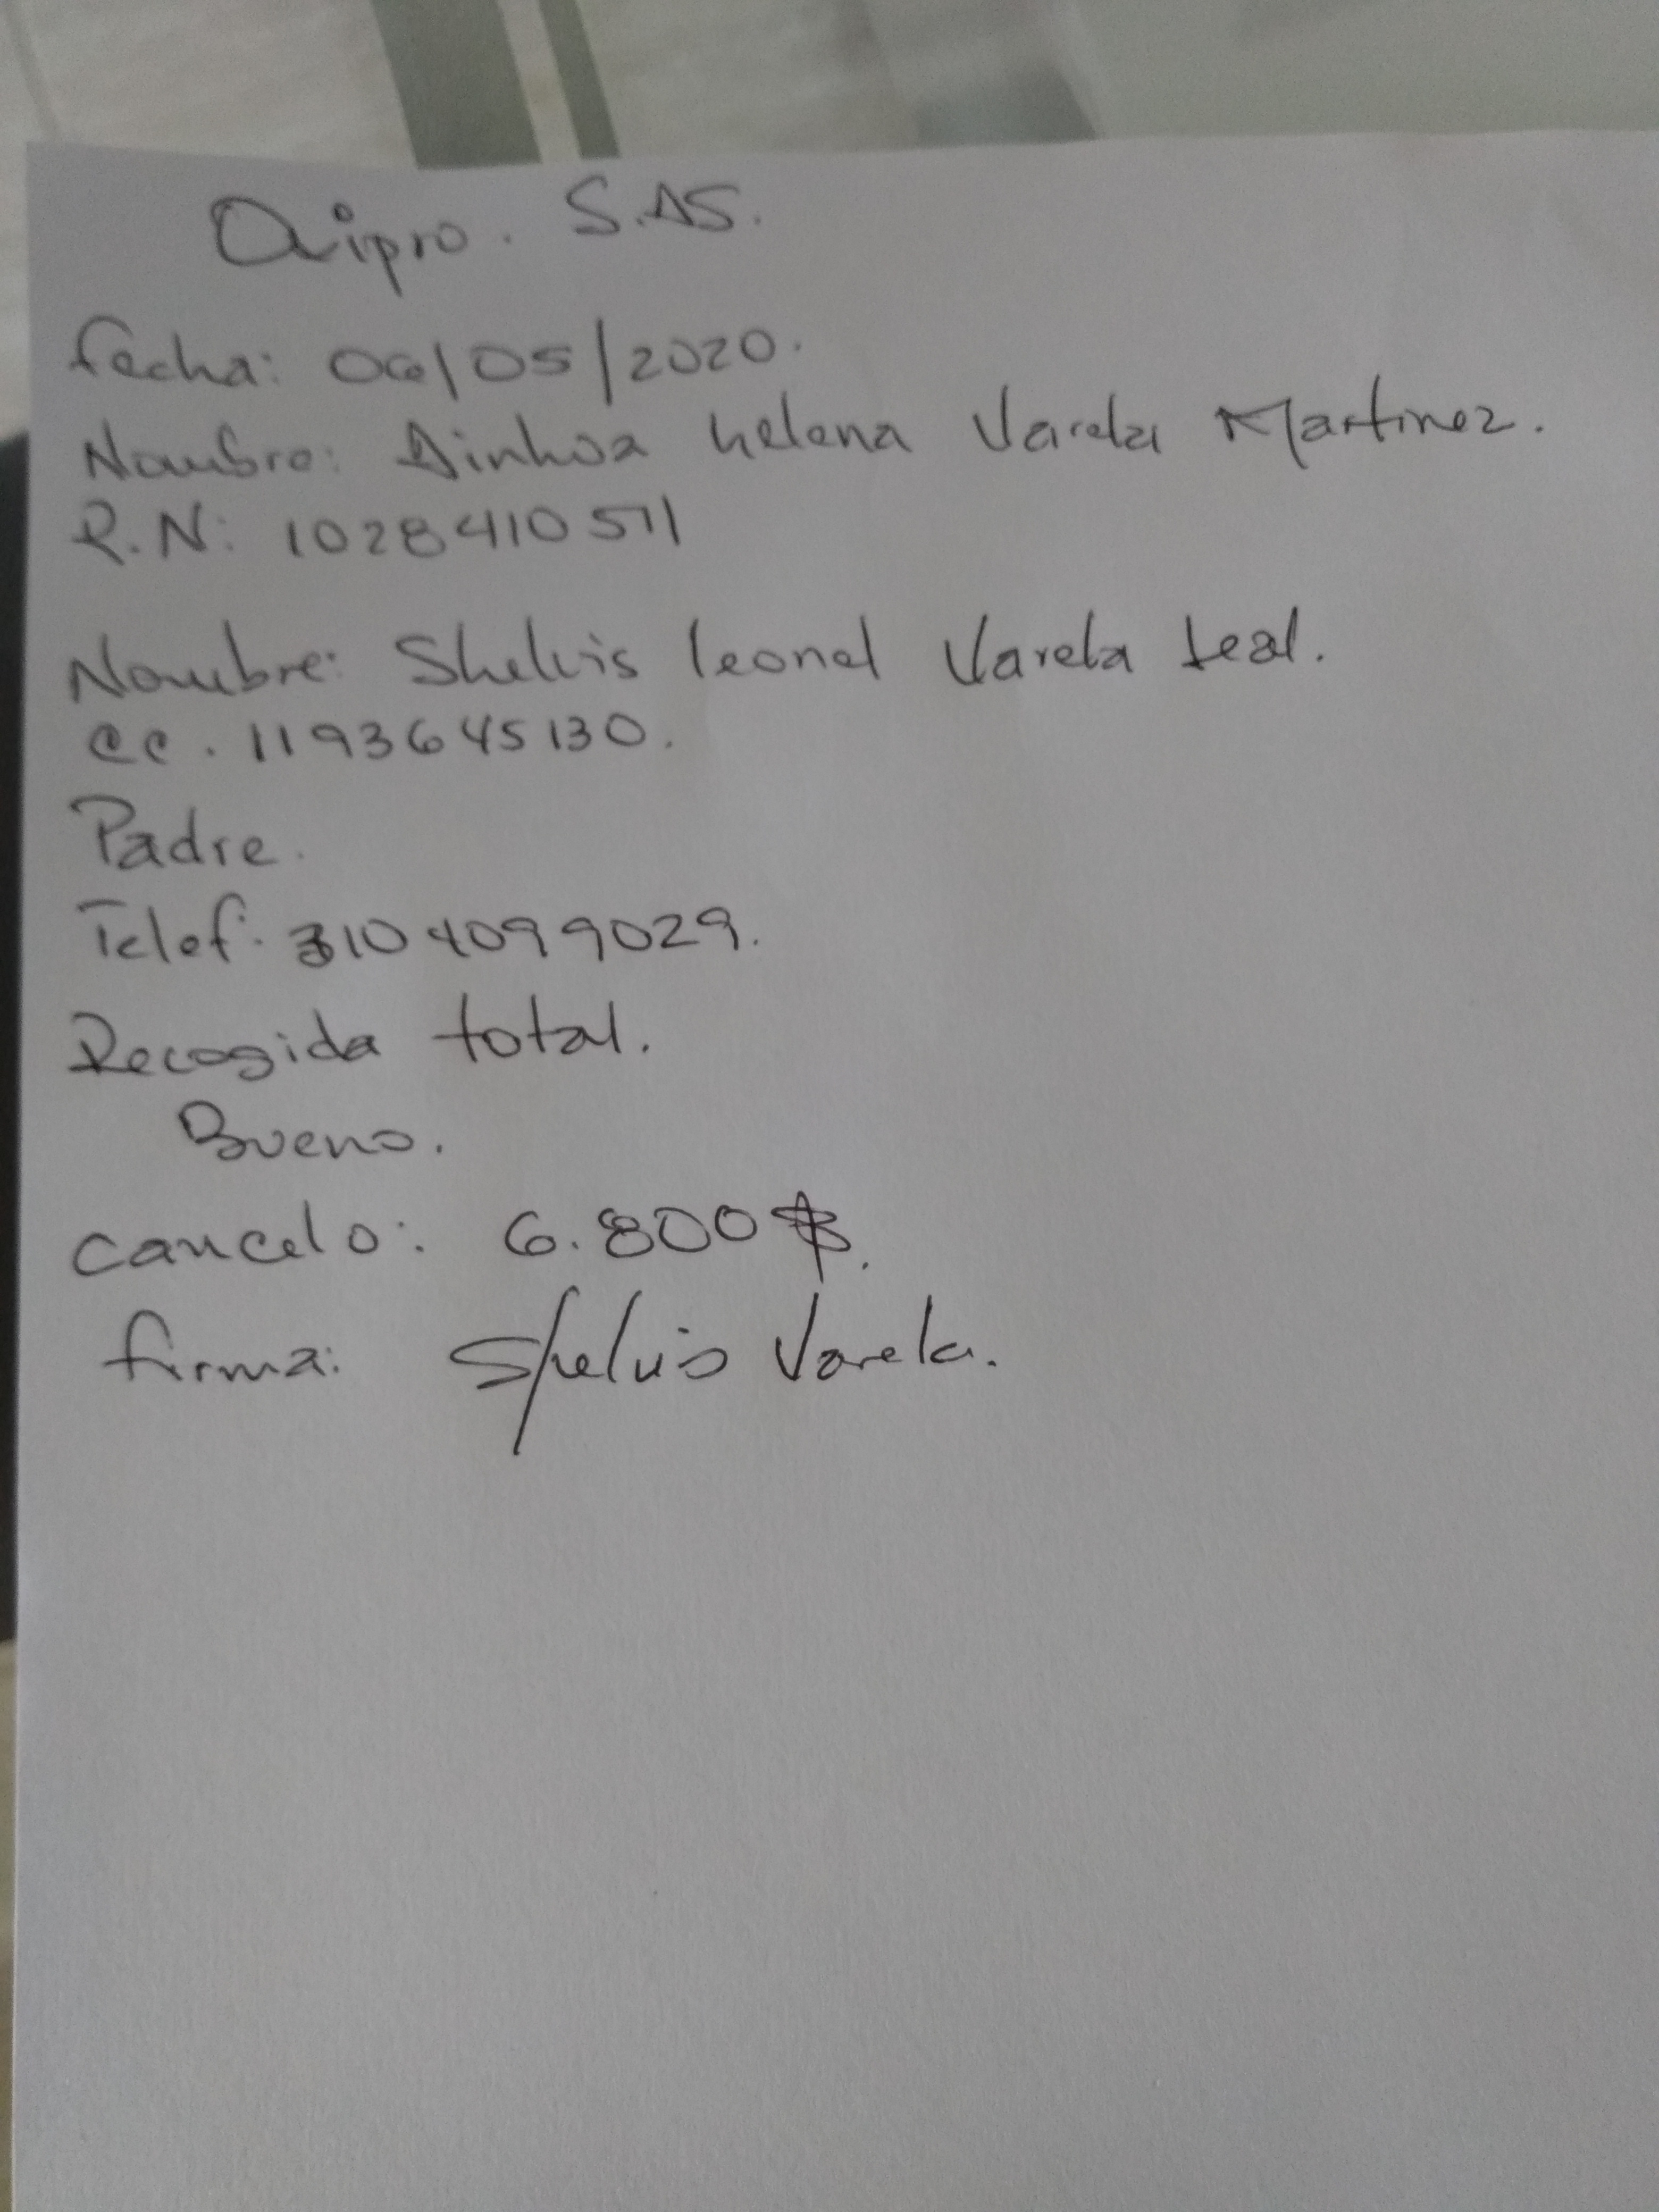 Qipro. S.AS.
fecha: 06/05/2020.
Nombre: Ainhoa helena Varela Martinez.
R.N: 1028410511
Nombre: Shelvis leonel Varela leal.
cc. 1193645130.
Padre.
Telef. 3104099029.
Recogida total.
Bueno.
cancelo: 6.800$.
firma: Shelvis Varela.